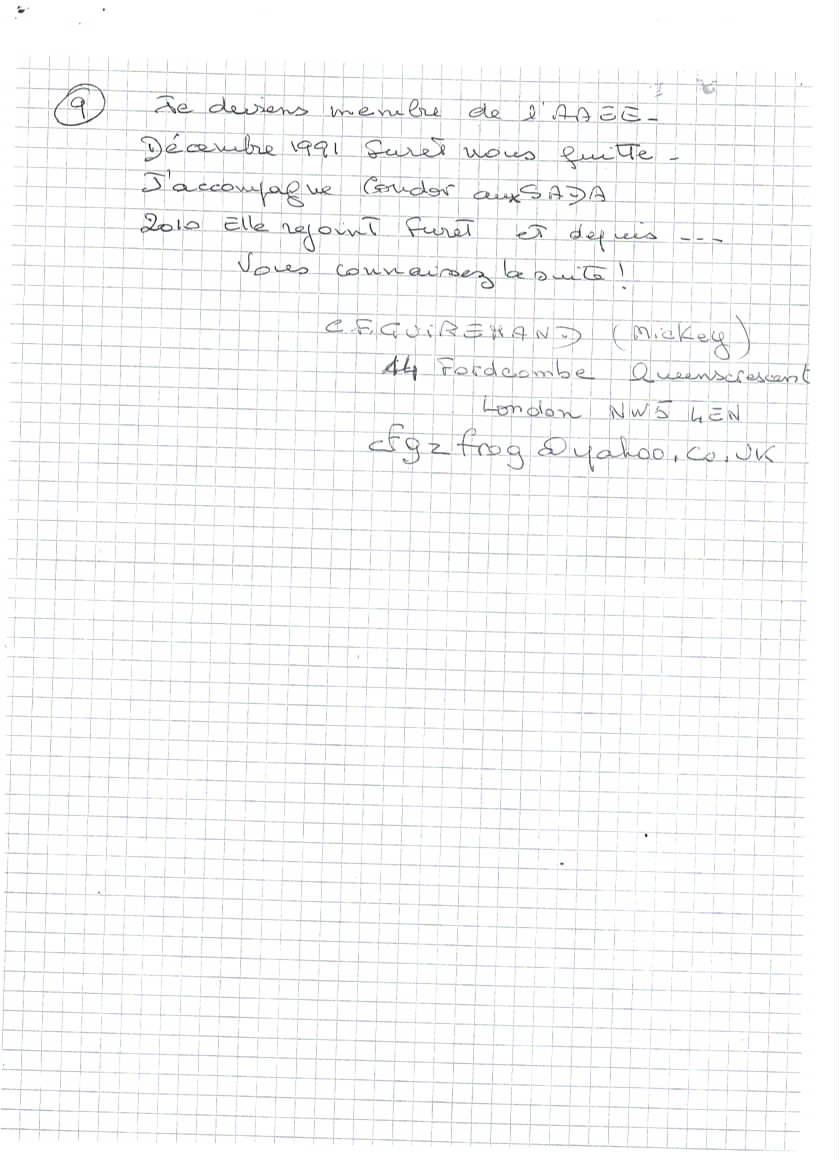 9 Je deviens membre de l'AAEE-
Décembre 1991 Furet nous quitte -
J'accompagne Condor aux SADA
2010 Elle rejoint Furet et depuis ---
Vous connaissez la suite !
C.F. GUIREMAND (Mickey)
14 Fordcombe Queenscrescent
London NW5 4EN
cfgzfrog@yahoo.co.UK